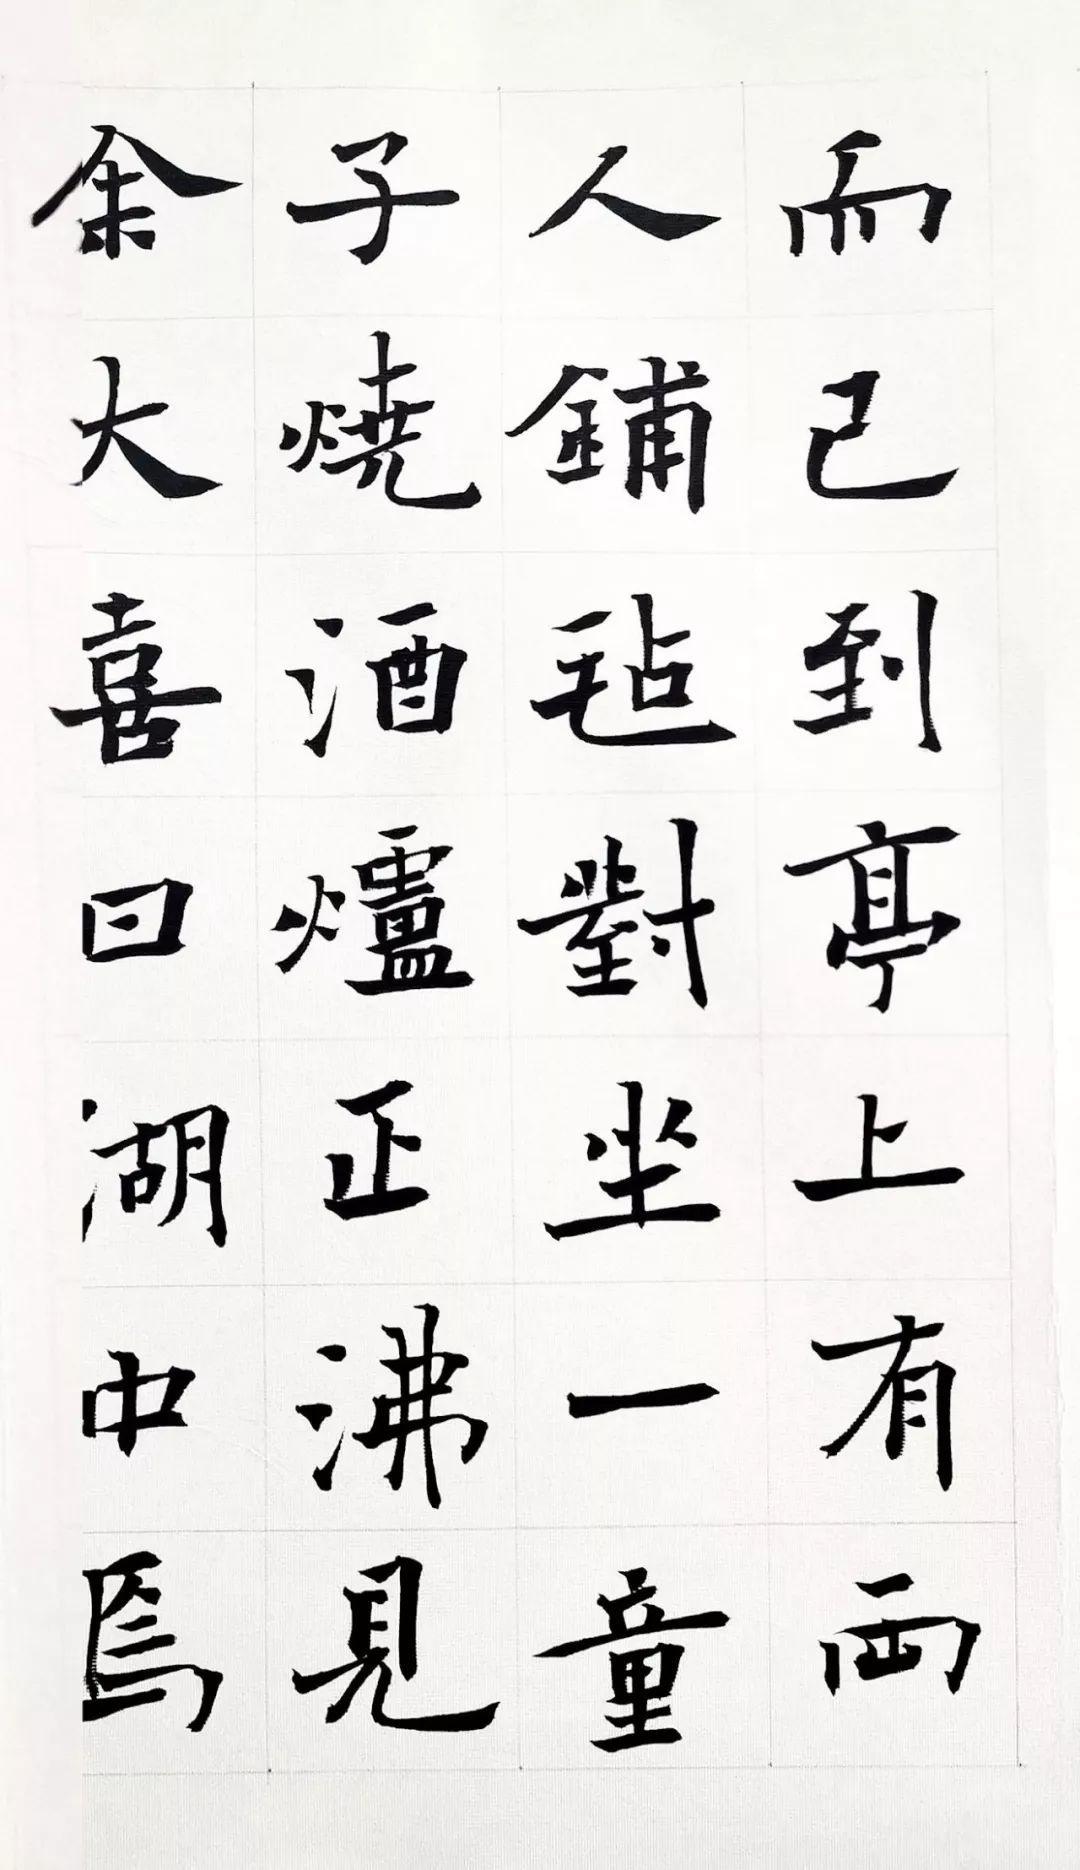 而已到亭上有兩
人鋪毡對坐一童
子燒酒爐正沸見
余大喜曰湖中焉